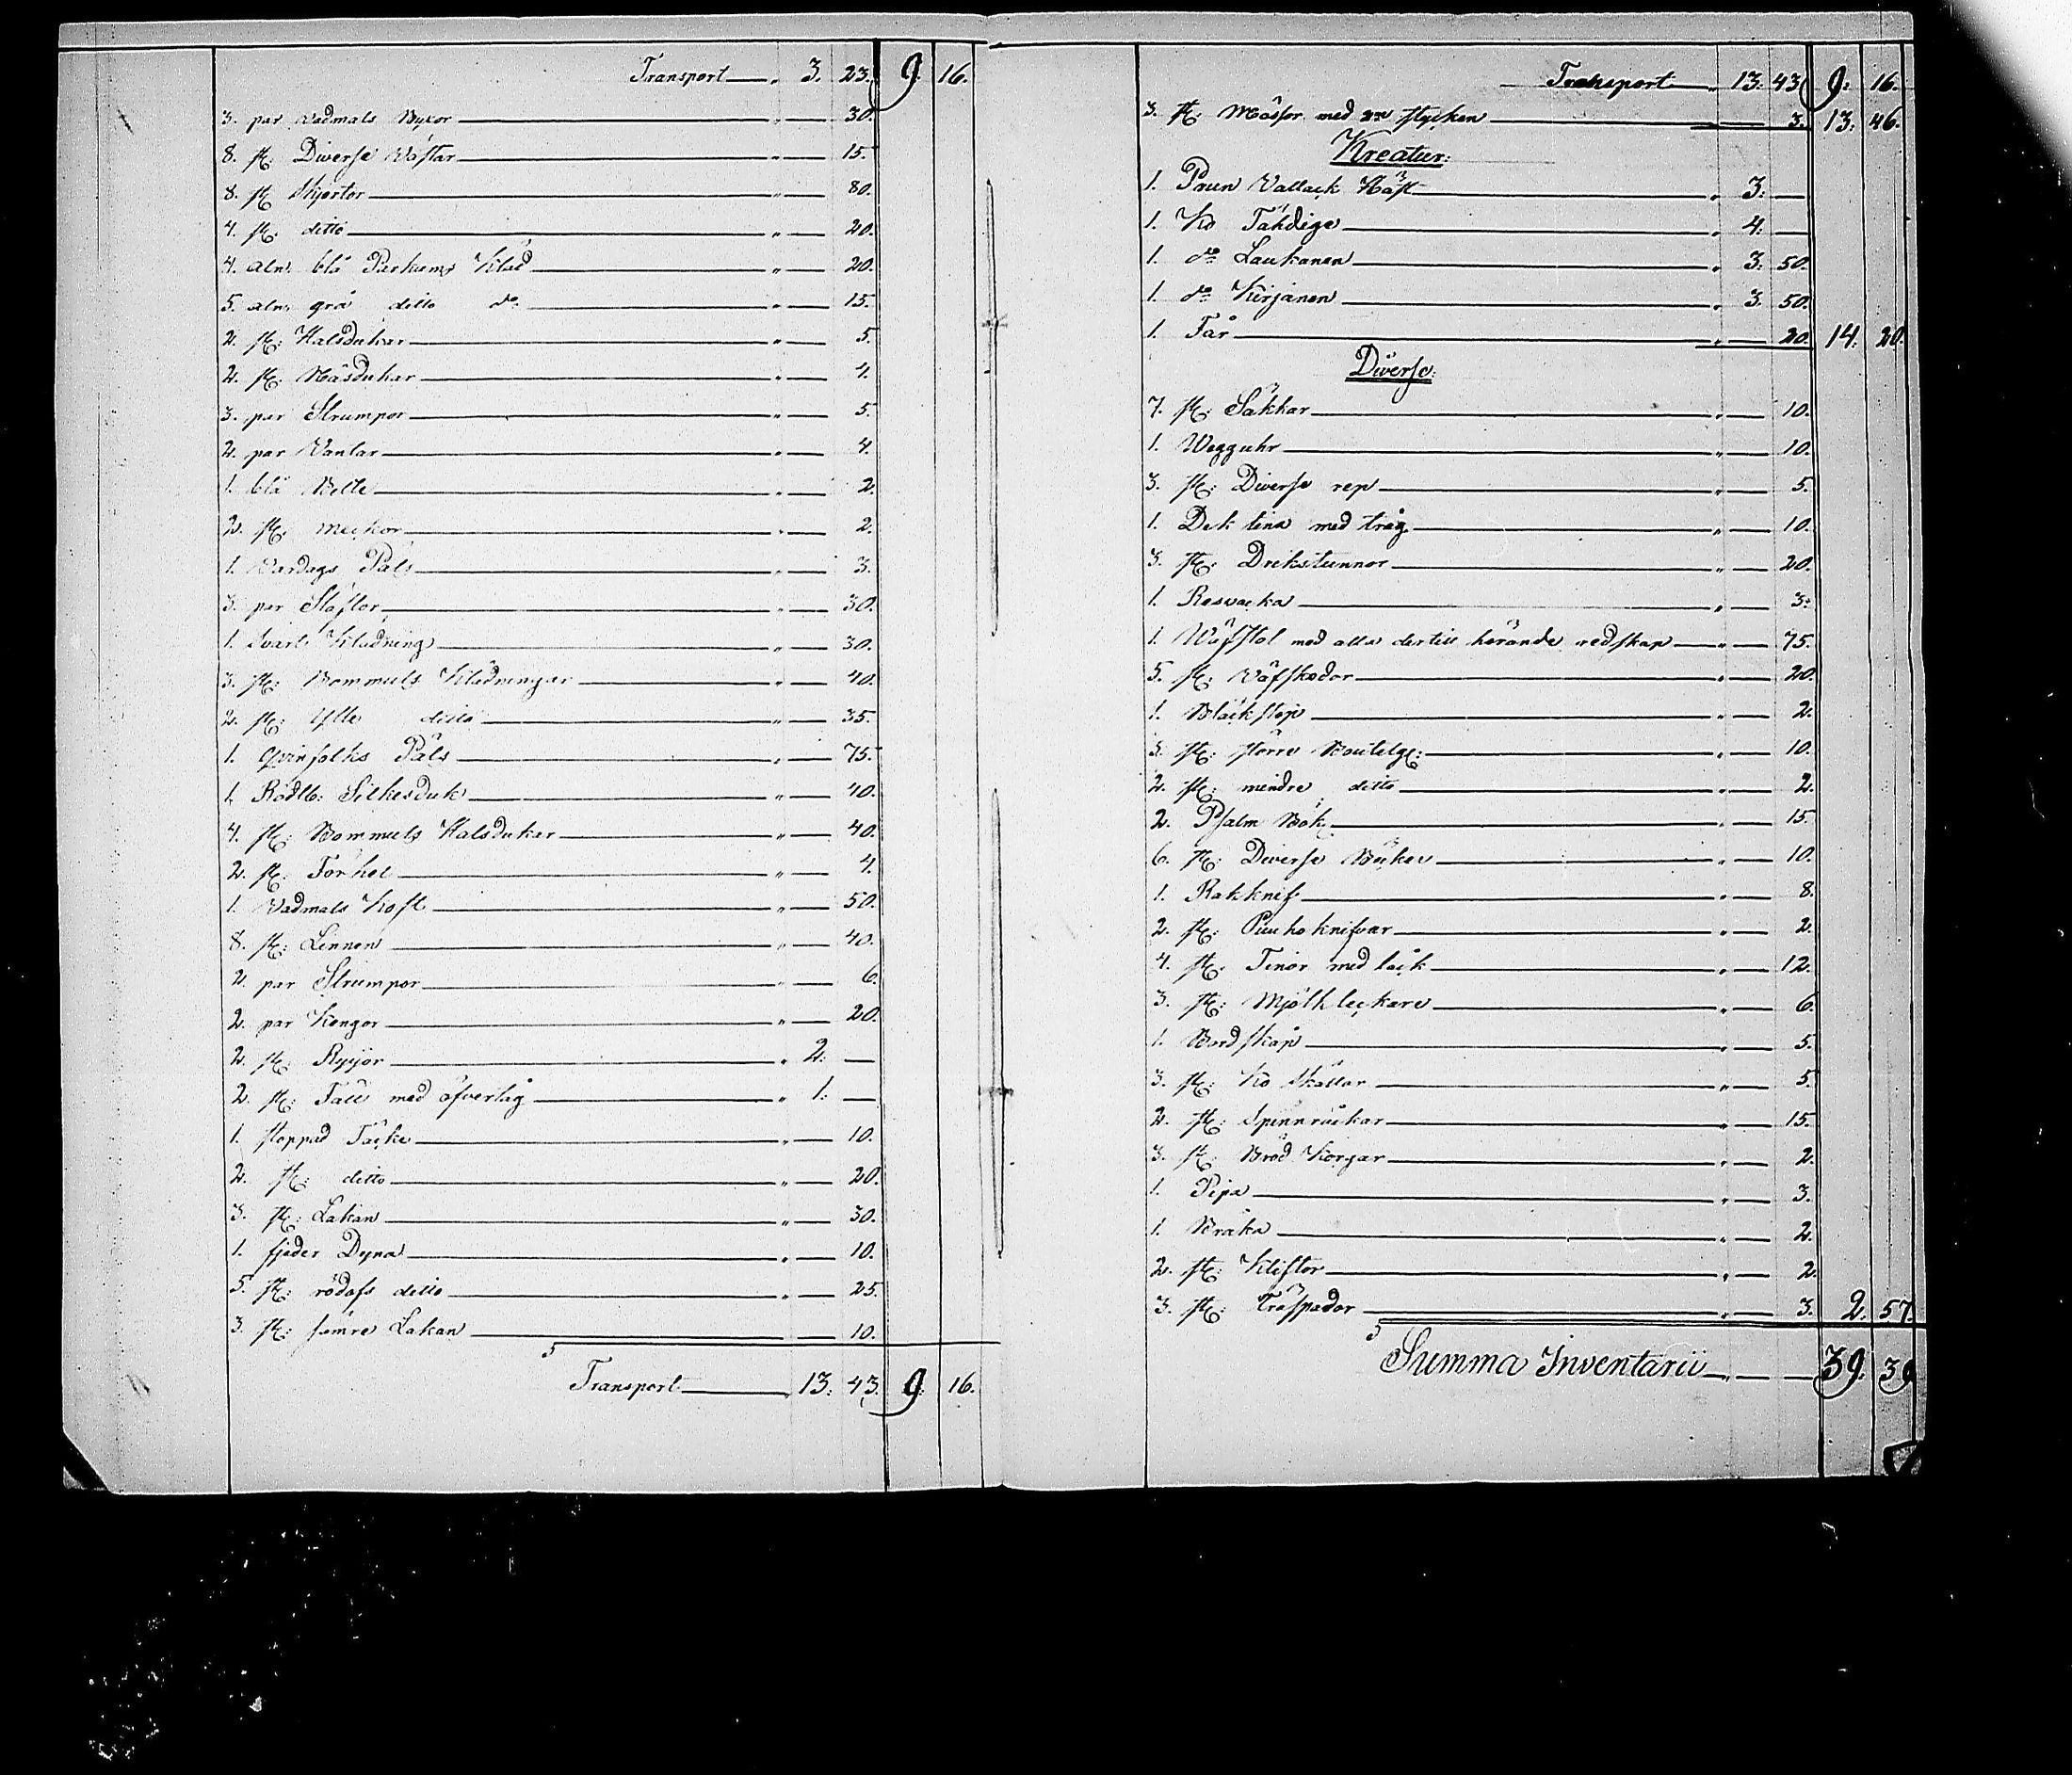 Transport — " 3. 23. 9. 16.
3. par Vadmals Byxor — " — 30.
8. st: Diverse Västar — " — 15.
8. st: Skjortor — " — 80.
4. st. ditto — " — 20.
4. aln. blå Parkums Kläd — " — 20.
5. aln. grå ditto do — " — 15.
2. st: Halsdukar — " — 5.
2. st. Näsdukar — " — 4.
3. par Strumpor — " — 5.
2. par Vantar — " — 4.
1. blå Bälte — " — 2.
2. st. — " — 2.
1. Vardags Päls — " — 3.
3. par Stöflor — " — 30.
1. Svart Klädning — " — 30.
3. st: Bommuls Klädningar — " — 40.
2. st: Ylle ditto — " — 35.
1. Qvinfolks Päls — " — 75.
1. Rödlb: Silkesduk — " — 40.
4. st: Bommuls Halsdukar — " — 40.
2. st. — " — 4.
1. Vadmals Koft — " — 50.
8. st: Linnen — " — 40.
2. par Strumpor — " — 6.
2. par Kengor — " — 20.
2. st: Ryijor — " 2. —
2. st: Fäll med öfverlåg — " 1. —
1. stoppad Täcke — " — 10.
2. st: ditto — " — 20.
3. st: Lakan — " — 30.
1. fjeder Dyna — " — 10.
5. st: rödafs ditto — " — 25.
3. st: sämre Lakan — — 10.
Transport — " 13. 43. 9. 16.
Transport — " 13. 43. 9. 16.
3. st: Mössor med stycken — 3. 13. 46.
Kreatur:
1. Brun Vallack Häst — " 3. —
1. Ko Tähdige — " 4. —
1. do Laukanen — " 3. 50.
1. do Kirjanen — " 3. 50.
1. Får — " — 20. 14. 20.
Diverse:
7. st: Säkkar — " — 10.
1. Wägguhr — " — 10.
3. st: Diverse rep — " — 5.
1. Dek tina med tråg — " — 10.
3. st: Drikstunnor — " — 20.
1. Resväcka — " — 3.
1. Wäfstol med alla dertill hörande redskap — " — 75.
5. st: Väfskedor — " — 20.
1. Bläckstop — " — 2.
3. st: större Boutelge: — " — 10.
2. st: mindre ditto — " — 2.
2. Psalm Bök: — " — 15.
6. st: Diverse Böker — " — 10.
1. Rakknif — " — 8.
2. st: Puuko knifvar — " — 2.
4. st: Tinor med låck — " — 12.
3. st: Mjölkbyckare — " — 6.
1. Bordskåp — " — 5.
3. st: Ko Skällor — " — 5.
2. st: Spinnråckar — " — 15.
3. st: Bröd Korgar — " — 2.
1. Pipa — " — 3.
1. Bråka — " — 2.
2. st: Kliftor — " — 2.
3. st: Träspador — 3. 2. 57.
Summa Inventarii — " — 39. 39